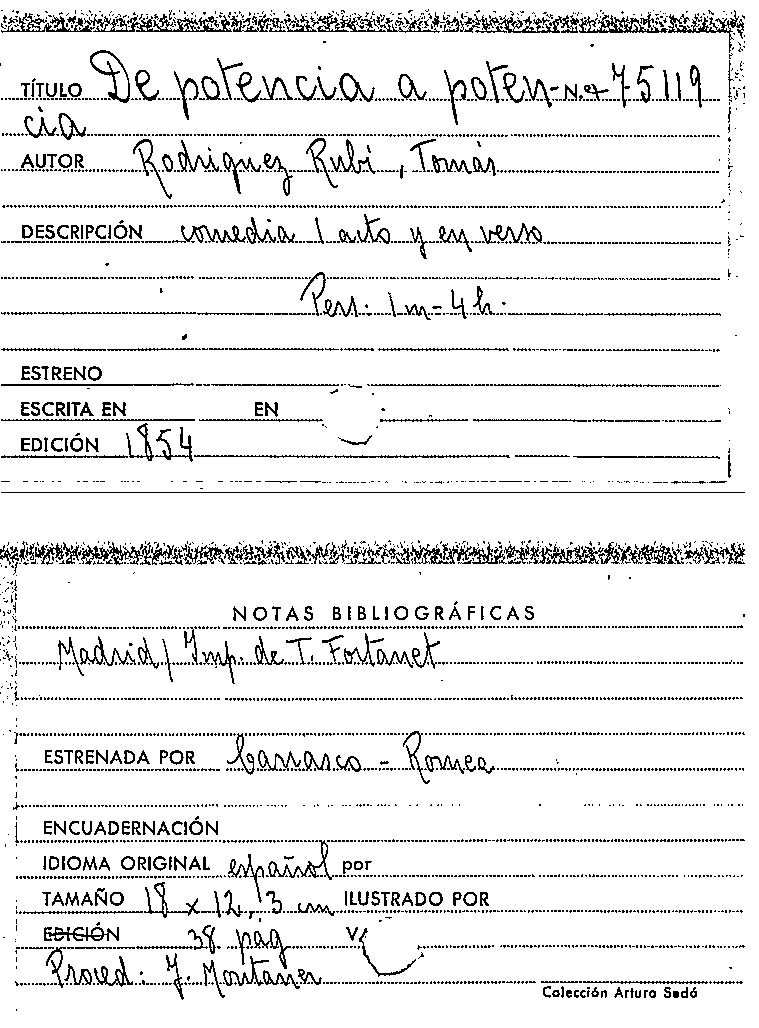 TÍTULO De potencia a poten- N.º 75119
cia
AUTOR Rodriguez Rubí, Tomás
DESCRIPCIÓN comedia 1 acto y en verso
Pers. 1m-4h.
ESTRENO
ESCRITA EN EN
EDICIÓN 1854
NOTAS BIBLIOGRÁFICAS
Madrid/ Imp. de T. Fortanet
ESTRENADA POR Carrasco - Romea
ENCUADERNACIÓN
IDIOMA ORIGINAL español por
TAMAÑO 18 x 12,3 cm ILUSTRADO POR
EDICIÓN 38 pág V
Proced: J. Montaner
Colección Arturo Sedó